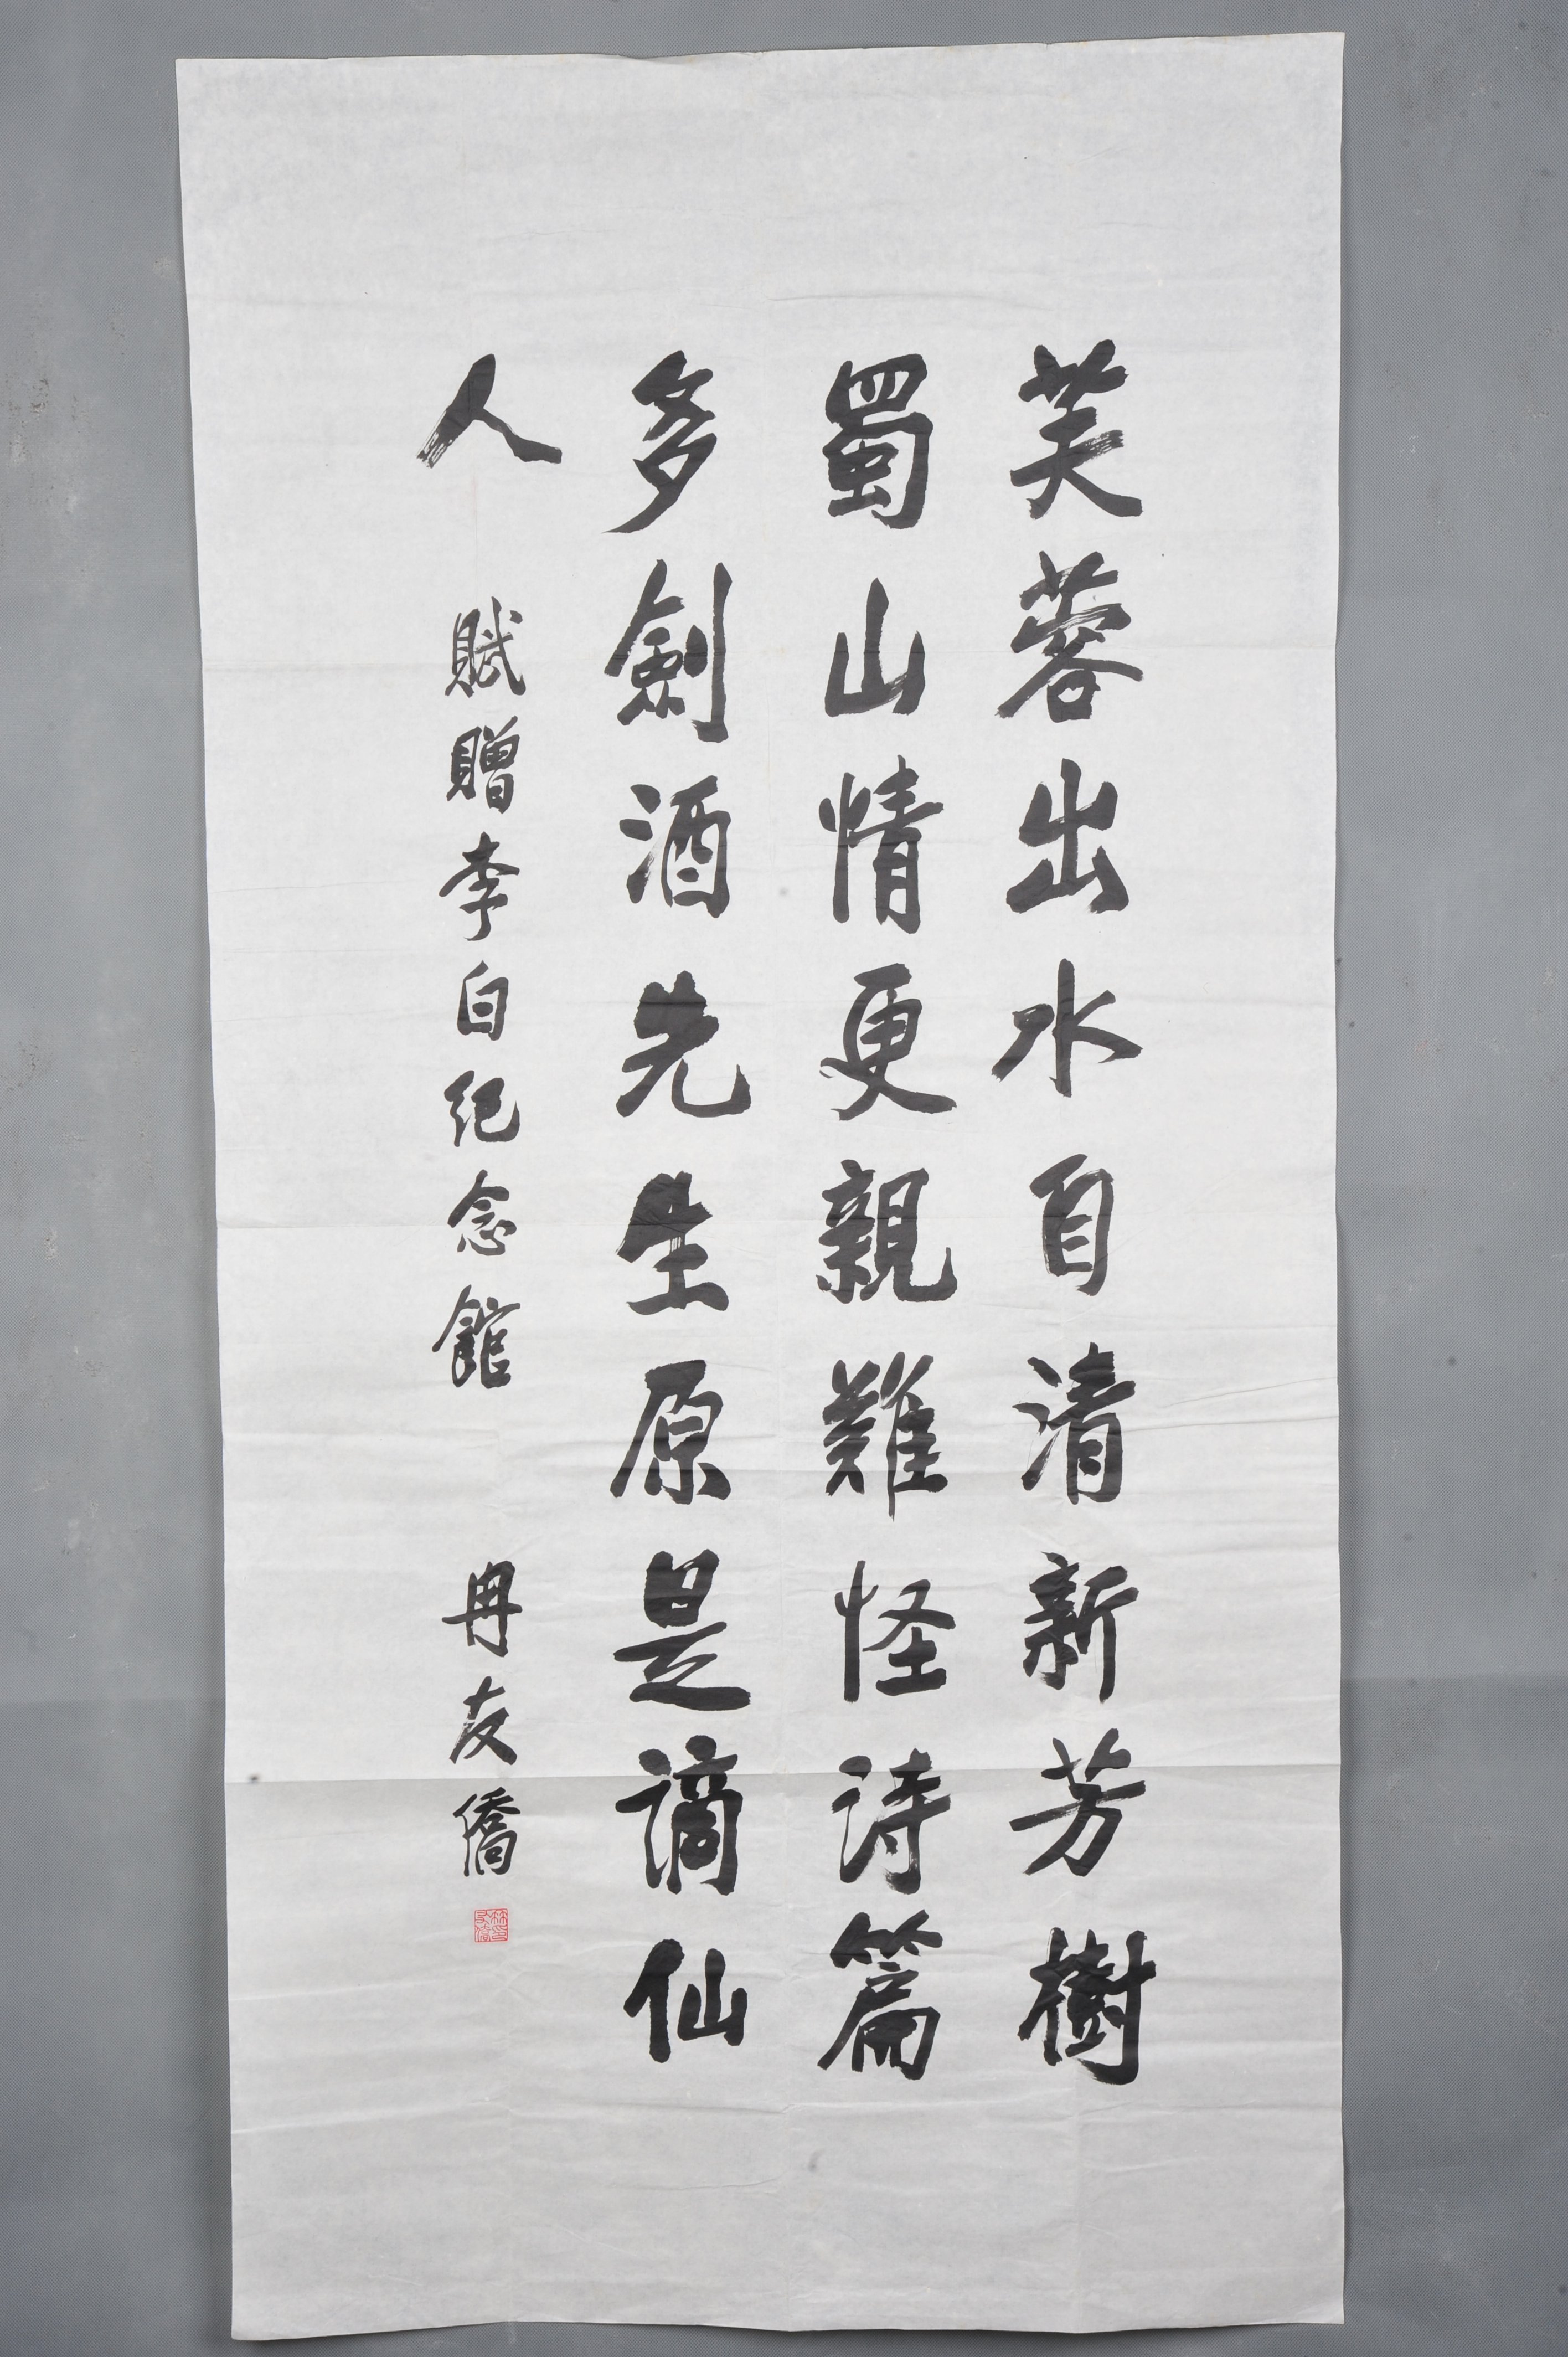 芙蓉出水自清新芳樹
蜀山情更親難怪诗篇
多劍酒先生原是謫仙
人 賦贈李白纪念館 冉友僑